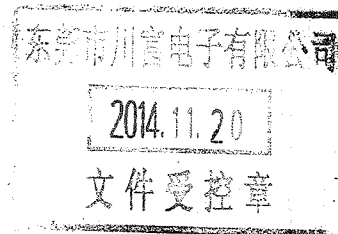 东莞市川富电子有限公司
2014.11.20
文件受控章